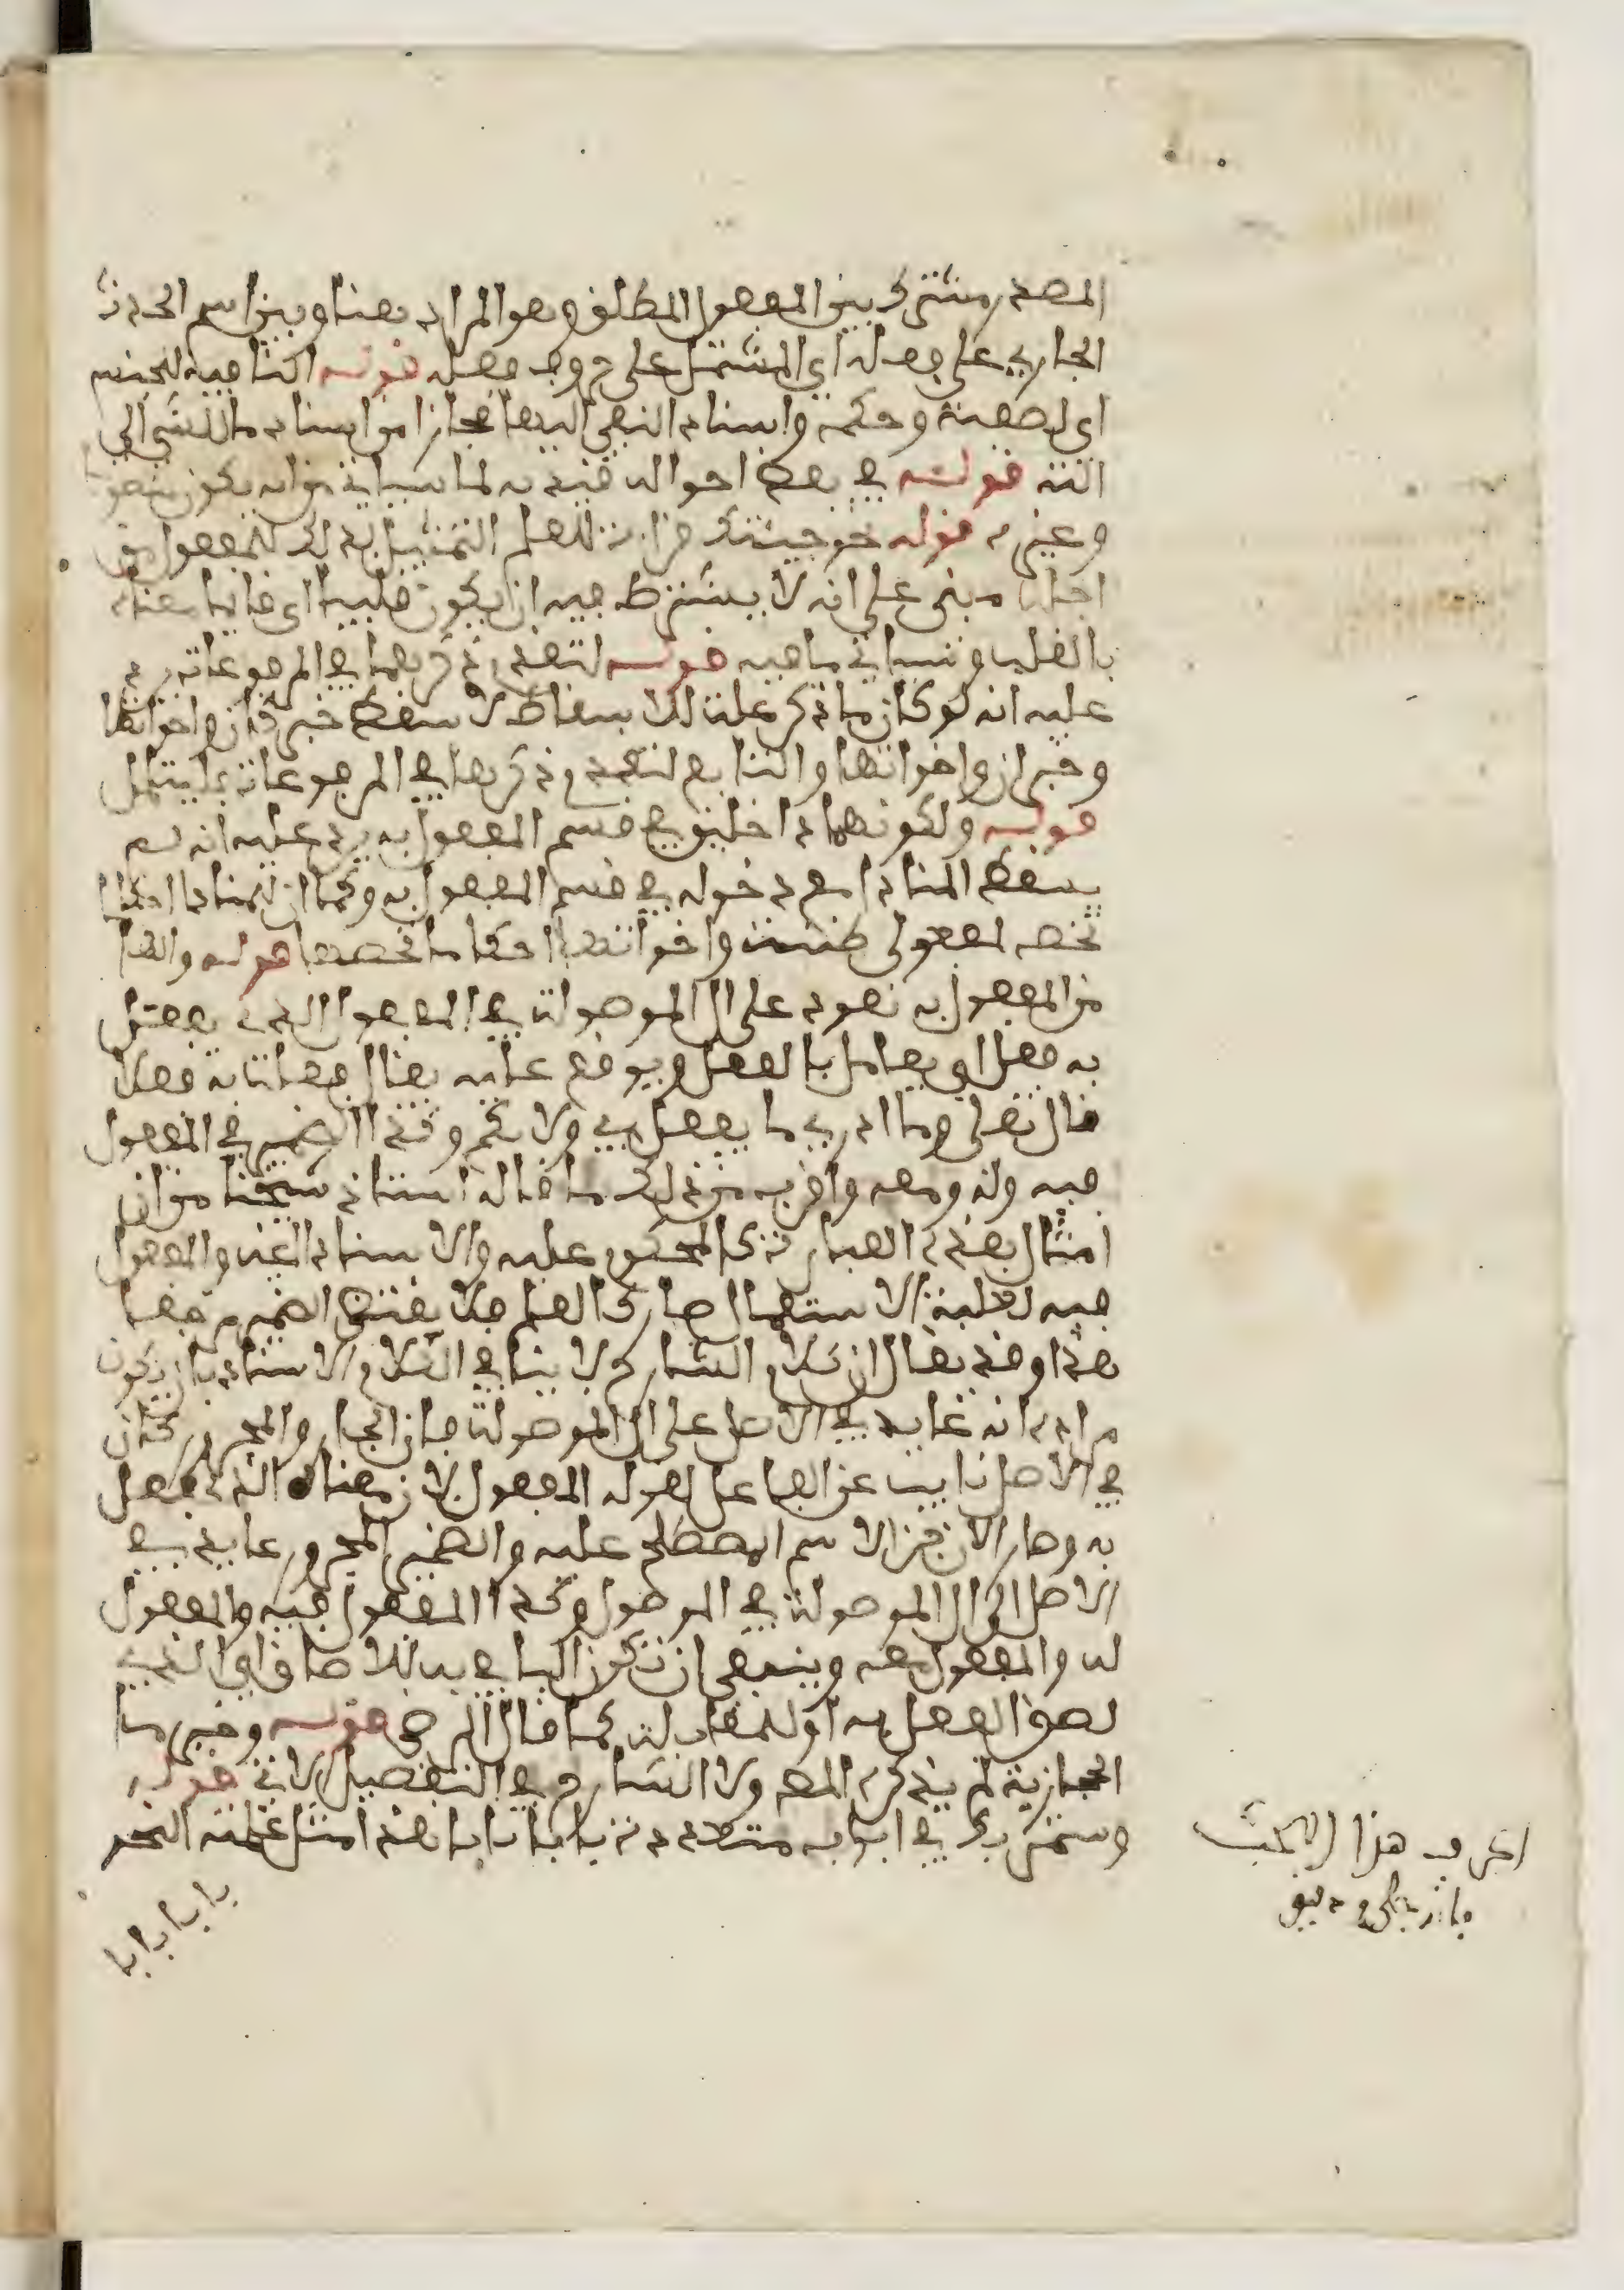 المصدر مشترك بين المفعول المطلق وهو المراد هنا وبين اسم الحدث
الجاري على فعله أي المشتمل على حروف فعله قوله النافية للجنس
اي لصفته وحكمه واسناد النفي اليها مجاز من اسناد ما للشيء الى
الته قوله في بعض احواله قيد به لما سياتي من انه يكون منصوبا
وغيره قوله نحو جئتك قراءة للعلم التمثيل بذلك للمفعول من
اجله مبني على انه لا يشترط فيه ان يكون قلبيا اي قائما معناه
بالقلب وسياتي ما فيه قوله لتقدم ذكرهما في المرفوعات يرد
عليه انه لو كان ما ذكر علة للاسقاط لاسقط خبر كان واخواتها
وخبر ان واخواتها والتابع لتقدم ذكرها في المرفوعات فليتامل
قوله ولكونهما داخلين في قسم المفعول به يرد عليه انه لم
يسقط المنادا مع دخوله في قسم المفعول به وكما ان للمنادا احكاما
تخصه لمفعولي ظننت واخواتها احكاما تخصها قوله والها
من المفعول به تعود على ال الموصولة في المفعول الذي يفعل
به فعل اي يعامل بالفعل ويوقع عليه يقال فعلت به فعلا
قال تعلى وما ادري ما يفعل بي ولا بكم وكذا الضمير في المفعول
فيه وله ومعه واقرب من ذلك ما قاله استاذ شيخنا من ان
امثال هذه العبارة كالمحكوم عليه والاسناد اليه والمفعول
فيه لغلبة الاستعمال صار كالعلم فلا يقتضي الضمير مرجعا
هذا وقد يقال ان كلام الشارح لا ينافي الكلام الاستاذ بان يكون
مراده انه عايد في الاصل على ال الموصولة فان الجار والمجرور كان
في الاصل نايب عن الفاعل لقوله المفعول لان معناه الذي فعل
به وصار الان جزء الاسم المصطلح عليه والضمير المجرور عايد في
الاصل الى ال الموصولة في الموصول وكذا المفعول فيه والمفعول
له والمفعول معه وينبغي ان تكون البا في به للالصاق اي الذي
لصق الفعل به او للمقابلة كما قال الرضي قوله وخبر ما
الحجازية لم يذكره المص ولا الشارح في التفصيل الاتي قوله
وستمر بك في ابواب متعددة بابا بابا هذه امثل غلبت النحو
بابا بابا
اعرف هذا البحث